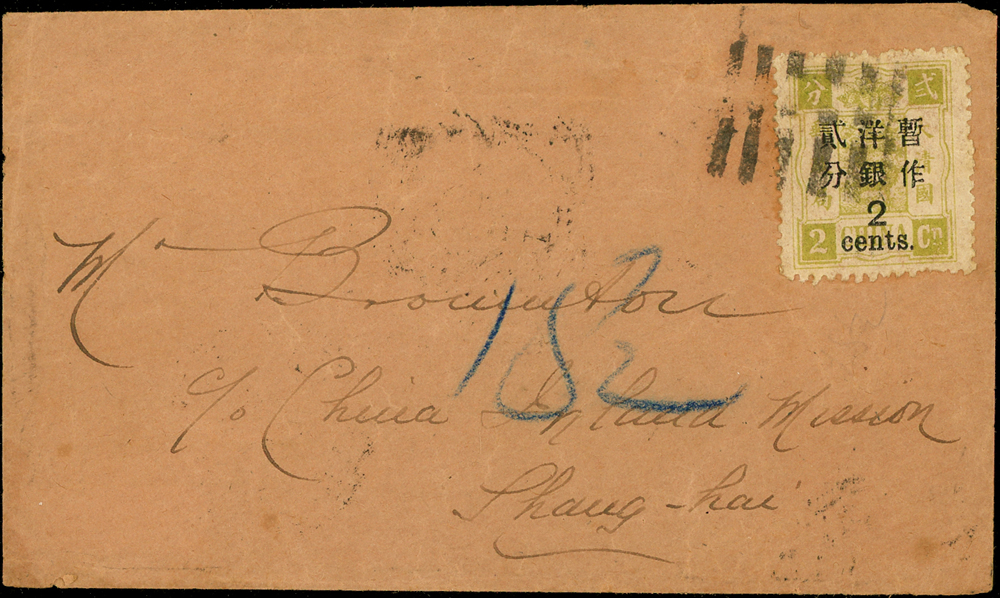 分 貳
暫作
洋銀
貳分
2
cents.
2 CHINA Cn
Mr Brownton
c/o China Inland Mission
Shang-hai